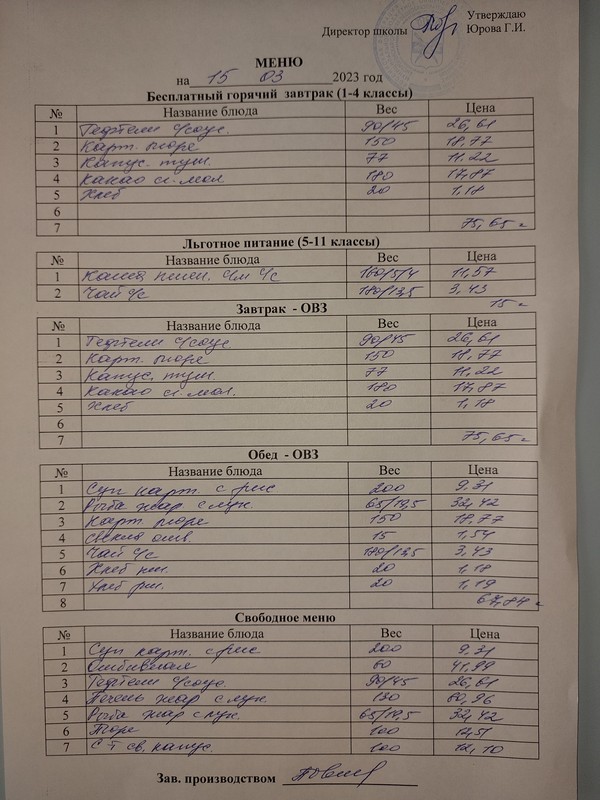 Утверждаю
Директор школы Юрова Г.И.
МЕНЮ
на 15 03 2023 год
Бесплатный горячий завтрак (1-4 классы)
№ Название блюда Вес Цена
1 Тефтели с/соус. 90/45 26,61
2 Карт. пюре 150 18,77
3 Капус. туш. 77 11.22
4 Какао сг. мол 180 17,87
5 Хлеб 20 1,18
6
7 75,65
Льготное питание (5-11 классы)
№ Название блюда Вес Цена
1 Каша пшен. с/м с/с 160/5/4 11,57
2 Чай с/с 180/13,5 3,43
15
Завтрак - ОВЗ
№ Название блюда Вес Цена
1 Тефтели с/соус 90/45 26,61
2 Карт. пюре 150 18,77
3 Капус. туш. 77 11.22
4 Какао сг. мол. 180 17,87
5 Хлеб 20 1,18
6
7 75,65
Обед - ОВЗ
№ Название блюда Вес Цена
1 Суп карт. с рис 200 9,31
2 Рыба жар с лук. 65/19,5 32,42
3 Карт. пюре 150 18,77
4 Свекла отв. 15 1,54
5 Чай с/с 180/13,5 3,43
6 Хлеб пш. 20 1,18
7 Хлеб рж. 20 1,19
8 67,84
Свободное меню
№ Название блюда Вес Цена
1 Суп карт. с рис 200 9,31
2 Отбивная 60 41,99
3 Тефтели с/соус. 90/45 26,61
4 Печень жар с лук. 130 60,96
5 Рыба жар с лук. 65/19,5 32,42
6 Пюре 100 12,51
7 С-т св. капус. 100 12,10
Зав. производством